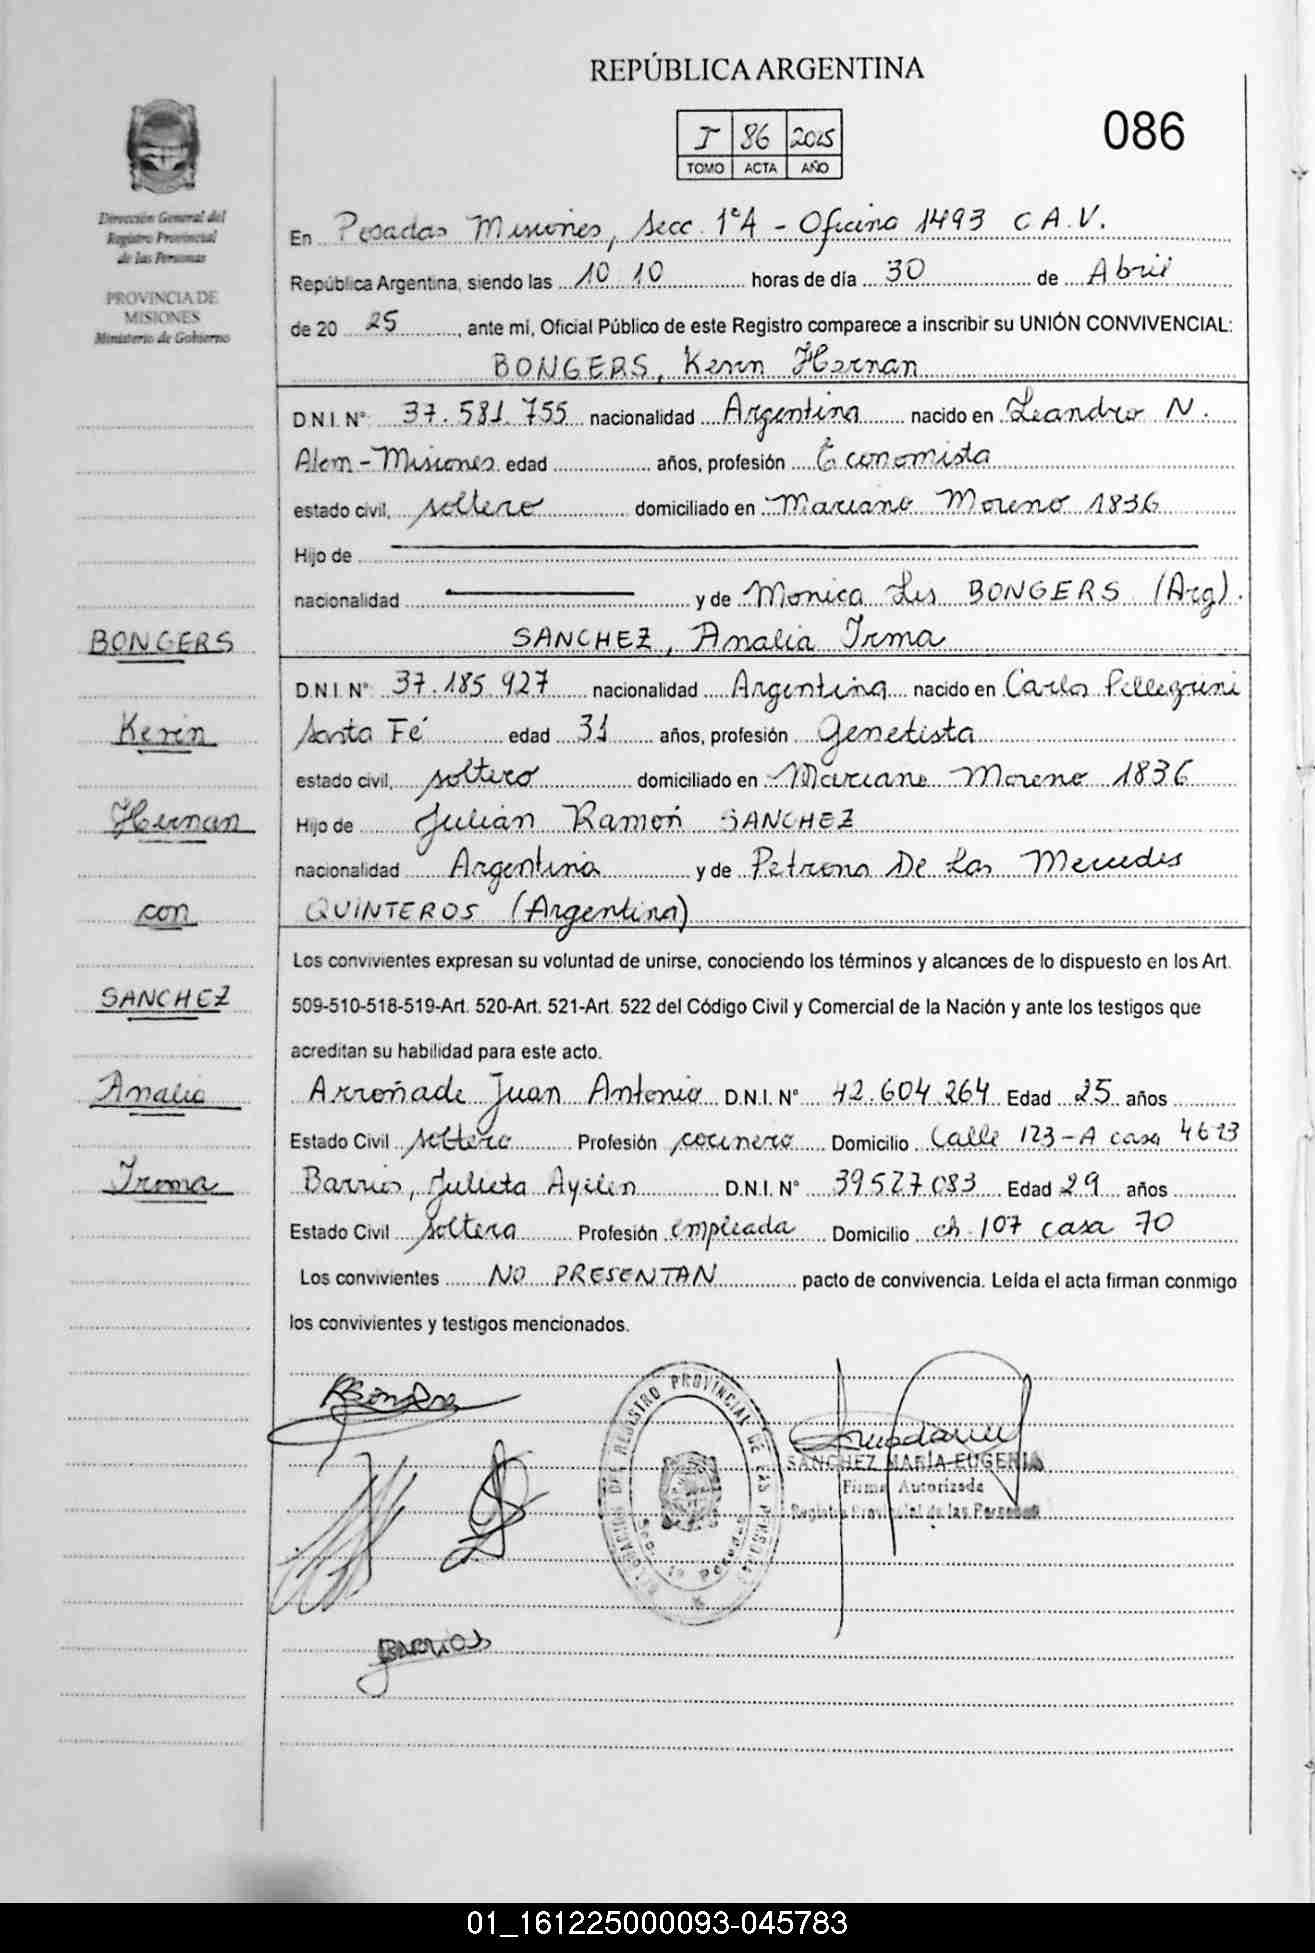 REPÚBLICA ARGENTINA
I 86 2025
TOMO ACTA AÑO
086
Dirección General del
Registro Provincial
de las Personas
PROVINCIA DE
MISIONES
Ministerio de Gobierno
En Posadas Misiones, Secc. 1ºA - Oficina 1493 C.A.V.
República Argentina, siendo las 10 10 horas de día 30 de Abril
de 20 25, ante mi, Oficial Público de este Registro comparece a inscribir su UNIÓN CONVIVENCIAL:
BONGERS, Kevin Hernan
D.N.I. N° 37.581.755 nacionalidad Argentina nacido en Leandro N.
Alem - Misiones edad años, profesión Economista
estado civil, soltero domiciliado en Mariano Moreno 1836
Hijo de
nacionalidad y de Monica Lis BONGERS (Arg).
SANCHEZ, Analia Irma
D.N.I. N° 37.185.927 nacionalidad Argentina nacido en Carlos Pellegrini
Santa Fé edad 31 años, profesión Genetista
estado civil, soltero domiciliado en Mariano Moreno 1836
Hijo de Julián Ramón SANCHEZ
nacionalidad Argentina y de Petrona De Las Mercedes
QUINTEROS (Argentina)
Los convivientes expresan su voluntad de unirse, conociendo los términos y alcances de lo dispuesto en los Art.
509-510-518-519-Art. 520-Art. 521-Art. 522 del Código Civil y Comercial de la Nación y ante los testigos que
acreditan su habilidad para este acto.
Arroñade Juan Antonio D.N.I. N° 42.604.264 Edad 25 años
Estado Civil soltero Profesión cocinero Domicilio Calle 123-A casa 4613
Barrios, Julieta Ayelen D.N.I. N° 39527083 Edad 29 años
Estado Civil soltera Profesión empleada Domicilio ch. 107 casa 70
Los convivientes NO PRESENTAN pacto de convivencia. Leída el acta firman conmigo
los convivientes y testigos mencionados.
BONGERS
Kevin
Hernan
con
SANCHEZ
Analia
Irma
SANCHEZ MARÍA EUGENIA
Firma Autorizada
Registro Provincial de las Personas
REGISTRO PROVINCIAL DE LAS PERSONAS
Posadas
BARRIOS
01_161225000093-045783